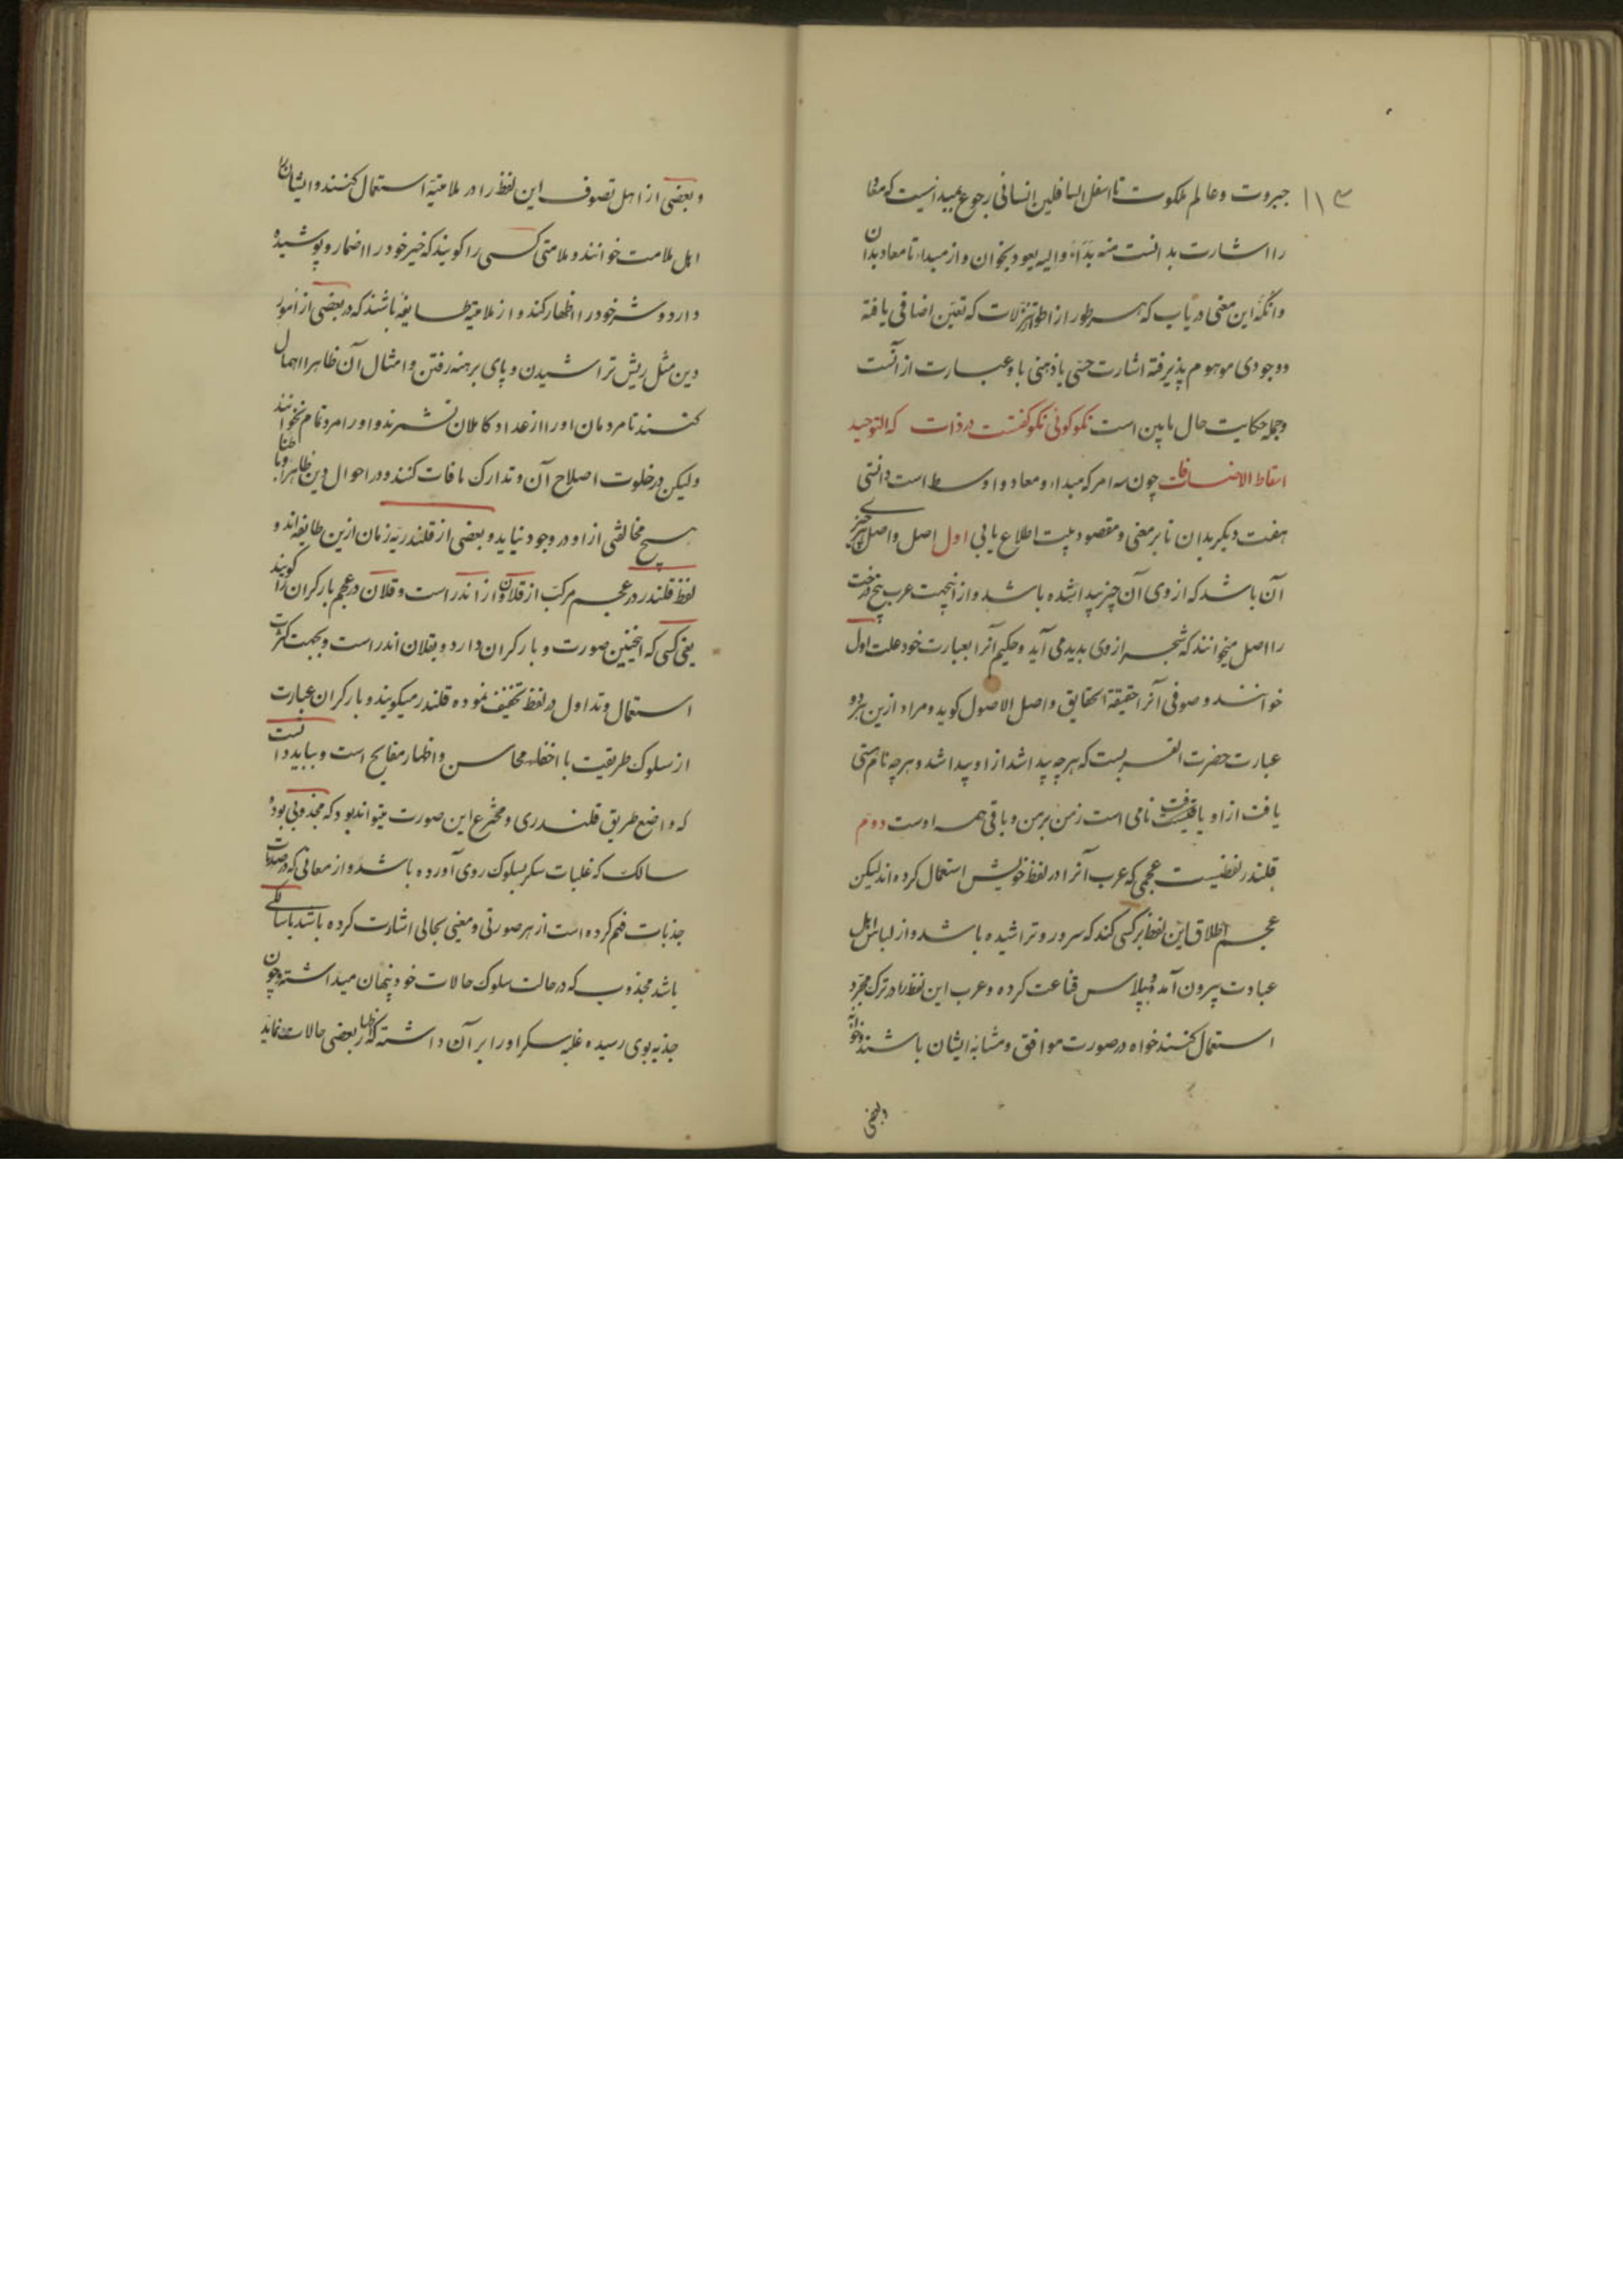 ۱۱۳
جبروت و عالم ملکوت تا اسفل السافلین انسانی رجوع بمبدائیست که مفا
را اشارت بدانست منه بَدَاَ وَ الیه یعود بخوان و از مبداء تا معاد بدان
وانگه این معنی دریاب که هر طور از اطوار تنزلات که تعیّن اضافی یافته
و وجودی موهوم پذیرفته اشارت حسّی یا ذهنی با و عبارت از آنست
و جمله حکایت حال مابین است نکو گوئی نکو گفتست در ذات که التوحید
اسقاط الاضافات چون سه امر که مبداء و معاد و اوسط است دانستی
هفت دیگر بدان تا بر معنی و مقصود بیت اطلاع یابی اول اصل و اصل هر چیزی
آن باشد که از وی آن چیز پیدا شده باشد و از اینجهت عرب بیخ درخت
را اصل میخوانند که شجر از وی پدید می آید و حکیم آنرا بعبارت خود علت اول
خوانند و صوفی آنرا حقیقة الحقایق و اصل الاصول کوید و مراد ازین هر دو
عبارت حضرت القدسیست که هرچه پیدا شد از او پیدا شد و هرچه نام هستی
یافت از او یافت نامی است زمن بر من و باقی همه اوست دوم
قلندر لفظیست عجمی که عرب آنرا در لفظ خویش استعمال کرده اند لیکن
عجم اطلاق این لفظ بر کسی کند که سر و رو تراشیده باشد و از لباس اهل
عبادت بیرون آمده و بپلاس قناعت کرده و عرب این لفظ را در ترک مجرّد
استعمال کنند خواه در صورت موافق و مشابه ایشان باشند و خواه نه
و بعضی
و بعضی از اهل تصوف این لفظ را در ملامتیه استعمال کنند و ایشان را
اهل ملامت خوانند و ملامتی کسی را کویند که خیر خود را اضمار و پوشیده
دارد و شر خود را اظهار کند و از ملامتیه طایفه باشند که در بعضی از امور
دین مثل ریش تراشیدن و پای برهنه رفتن و امثال آن ظاهرا اهمال
کنند تا مردمان او را از عداد کاملان نشمرند و او را مرد تمام نخوانند
ولیکن در خلوت اصلاح آن و تدارک مافات کنند و در احوال دین ظاهرا و باطنا
هیچ مخالفتی از او در وجود نیاید و بعضی از قلندریّه زمان ازین طایفه اند و
لفظ قلندر در عجم مرکب از قلان و از اندر است و قلان در عجم بار کران را کویند
یعنی کسی که اینچنین صورت و بار کران دارد و بقلان اندر است و بجهت کثرت
استعمال و تداول در لفظ تخفیف نموده قلندر میکویند و بار کران عبارت
از سلوک طریقت با اخفاء محاسن و اظهار مقابح است و بباید دانست
که واضع طریق قلندری و مخترع این صورت میتواند بود که مجذوبی بوده
سالک که غلبات سکر بسلوک روی آورده باشد و از معانی که در صدمات
جذبات فهم کرده است از هر صورتی و معنی بحالی اشارت کرده باشد یا سالکی
باشد مجذوب که در حالت سلوک حالات خود پنهان میداشته و چون
جذبه بوی رسیده غلبه سکر او را بر آن داشته که اظهار بعضی حالات نماید